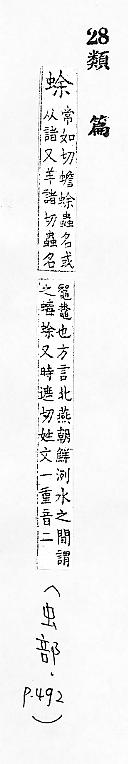 28
類篇
蜍
常如切蟾蜍蟲名或
从諸又羊諸切蟲名
鼅鼄也方言北燕朝鮮洌水之間謂
之蝳蜍又時遮切姓文一重音二
(虫部.
p.492)